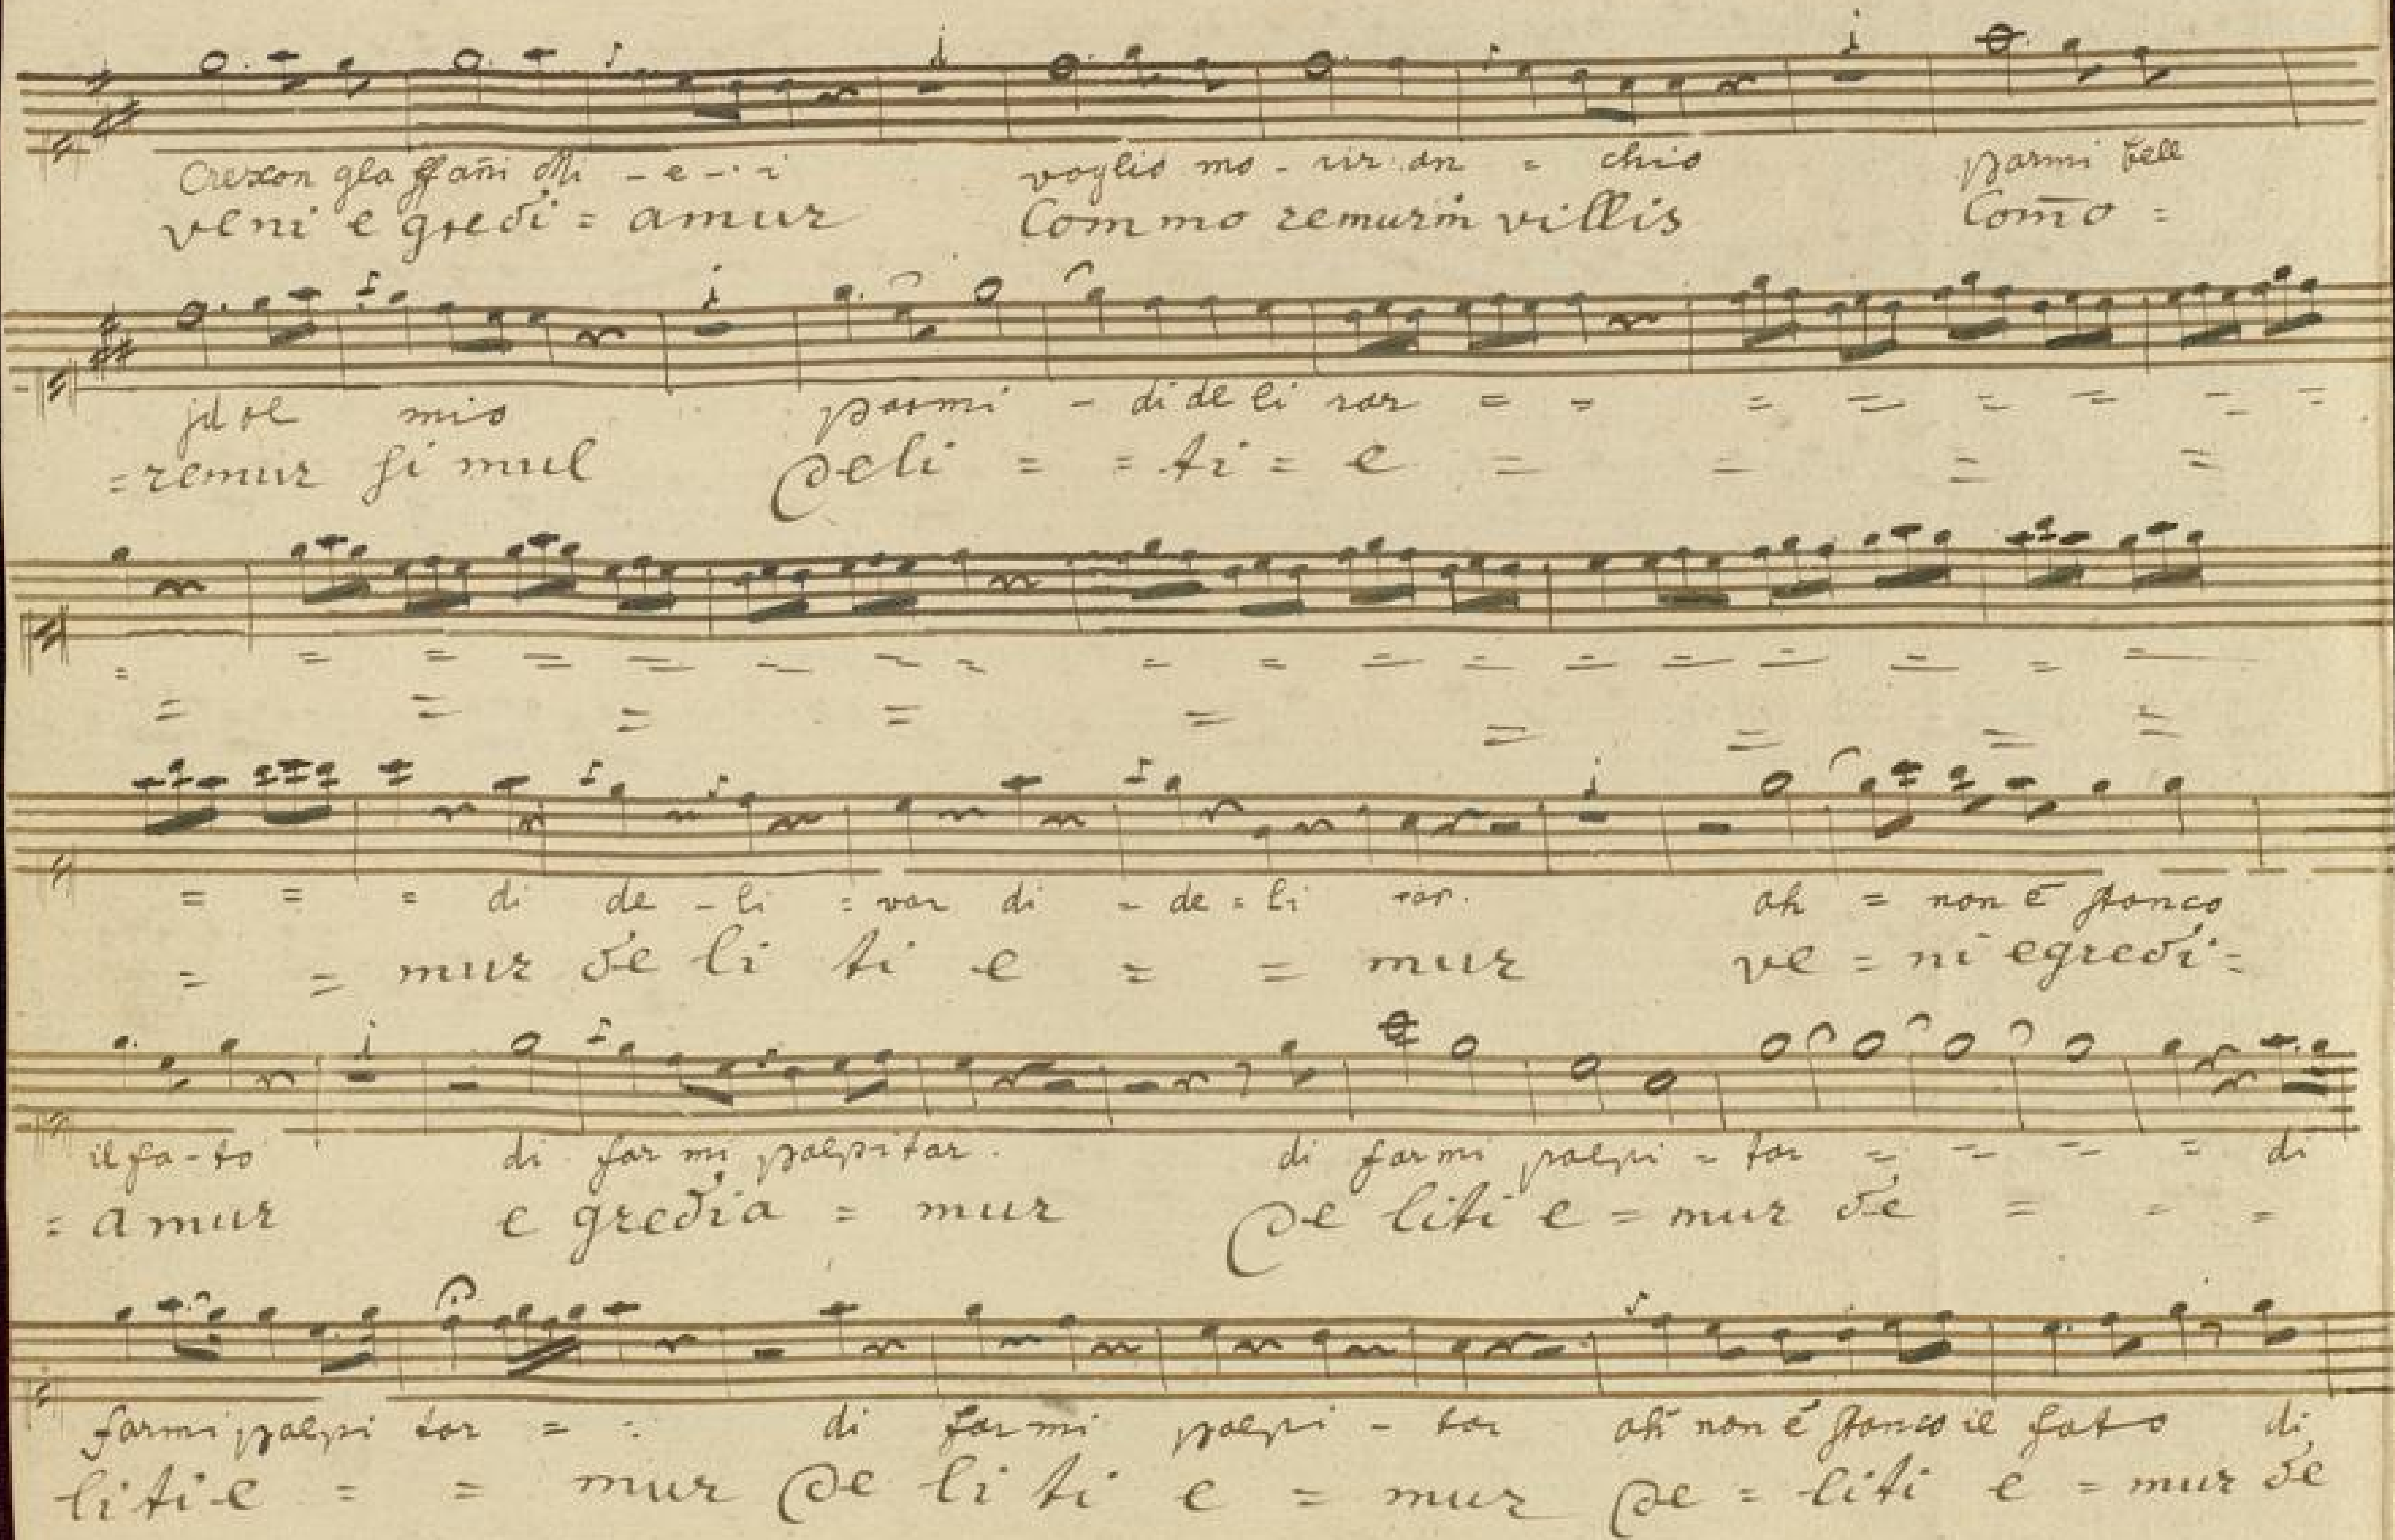 Crexon gla ffañi Mi - e - i voglio mo - rir an = chio parmi bell
veni e gredi = amur Commo remurin villis Com̄o =
jdol mio parmi - di de li rar = =
= remur simul Deli = = ti = e =
= = = di de - li = rar di - de = li rar. ah = non é stanco
= = mur de li ti e = = mur ve = ni egredi =
il fa - to di far mi palpitar. di farmi palpi = tar = = = = di
= amur e gredia = mur De liti e = mur de = = =
farmi palpi tar = = di far mi palpi - tar ah non é stanco il fato di
liti e = = mur De li ti e = mur De = liti e = mur de